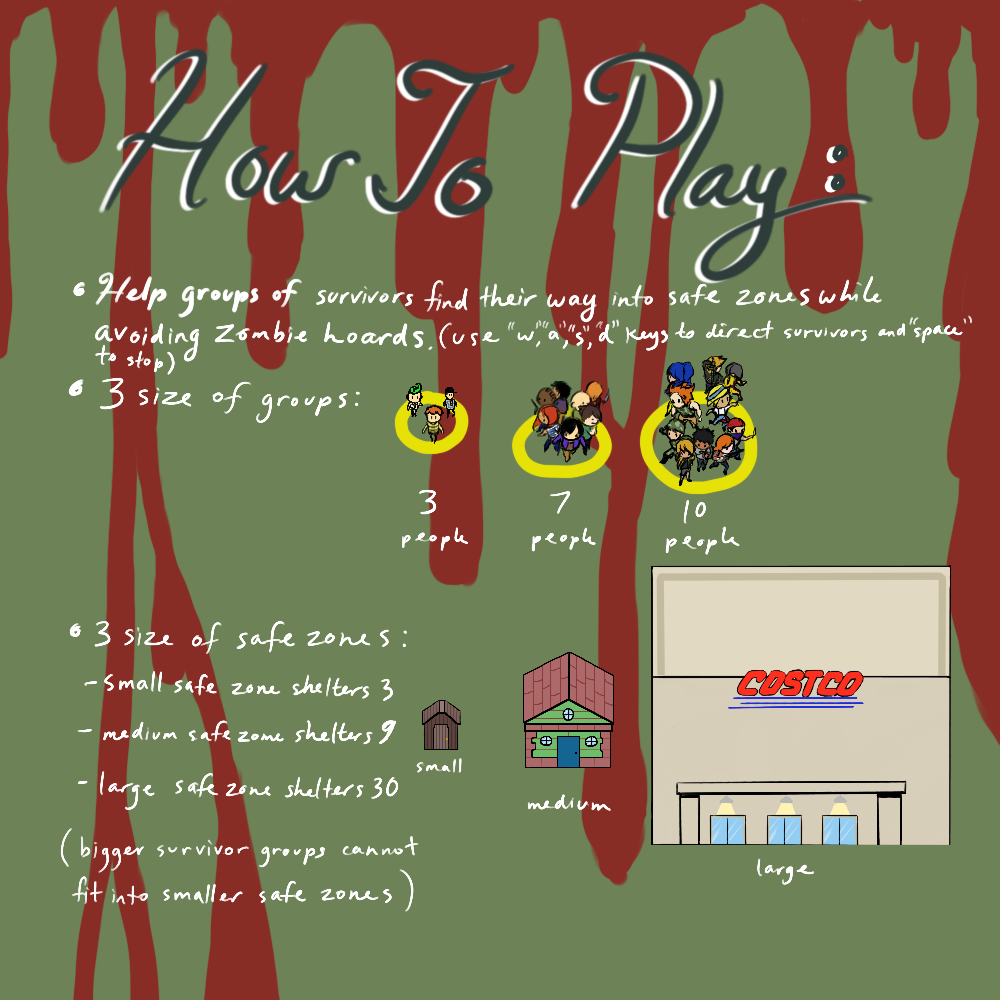 How To Play:
• Help groups of survivors find their way into safe zones while
avoiding zombie hoards. (use "w","a","s","d" keys to direct survivors and "space"
to stop)
• 3 size of groups:
3 people
7 people
10 people
• 3 size of safe zones:
- small safe zone shelters 3
- medium safe zone shelters 9
- large safe zone shelters 30
(bigger survivor groups cannot
fit into smaller safe zones)
small
medium
COSTCO
large